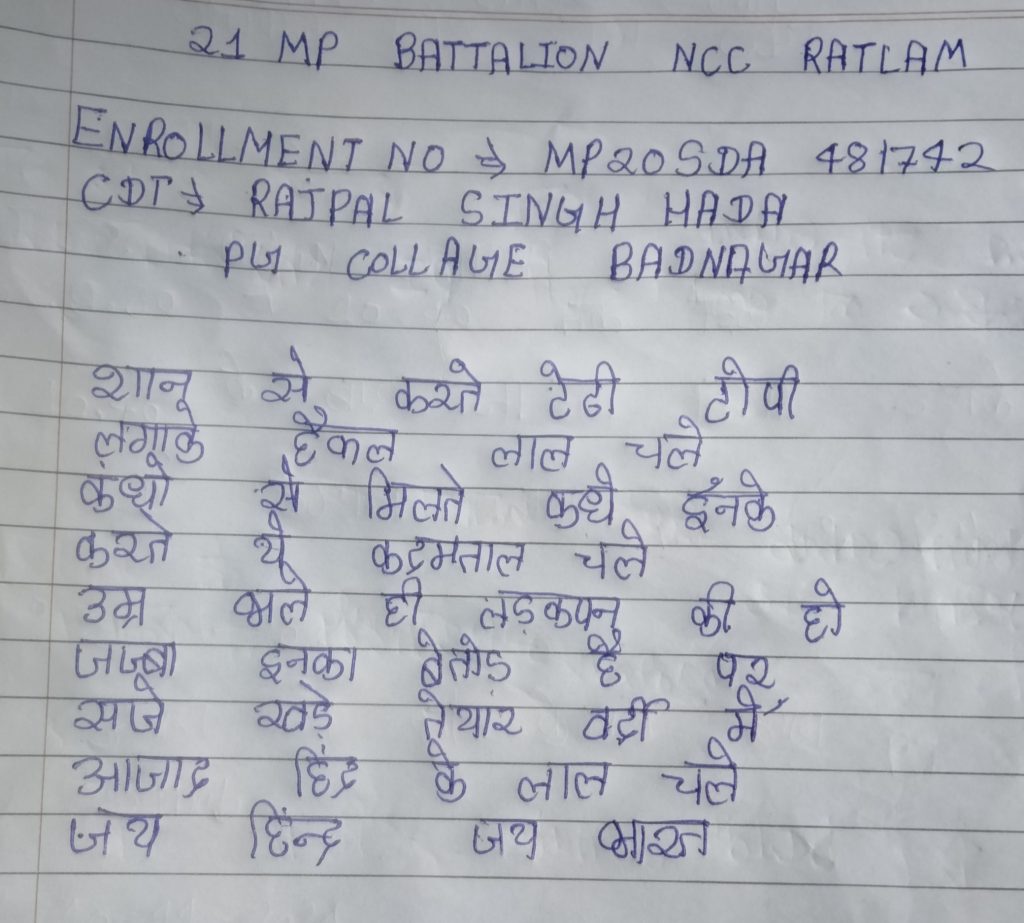 21 MP BATTALION NCC RATLAM
ENROLLMENT NO ⇒ MP20SDA 481742
CDT ⇒ RAJPAL SINGH HADA
PG COLLAGE BADNAGAR
शान से करते टेढी टोपी
लगाके हैकल लाल चले
कंधो से मिलते कधे इनके
करते ये कदमताल चले
उम्र भले ही लड़कपन की हो
जज्बा इनका बेतोड़ है पर
सजे खड़े तेयार वर्दी में
आजाद हिंद के लाल चले
जय हिंन्द जय भारत